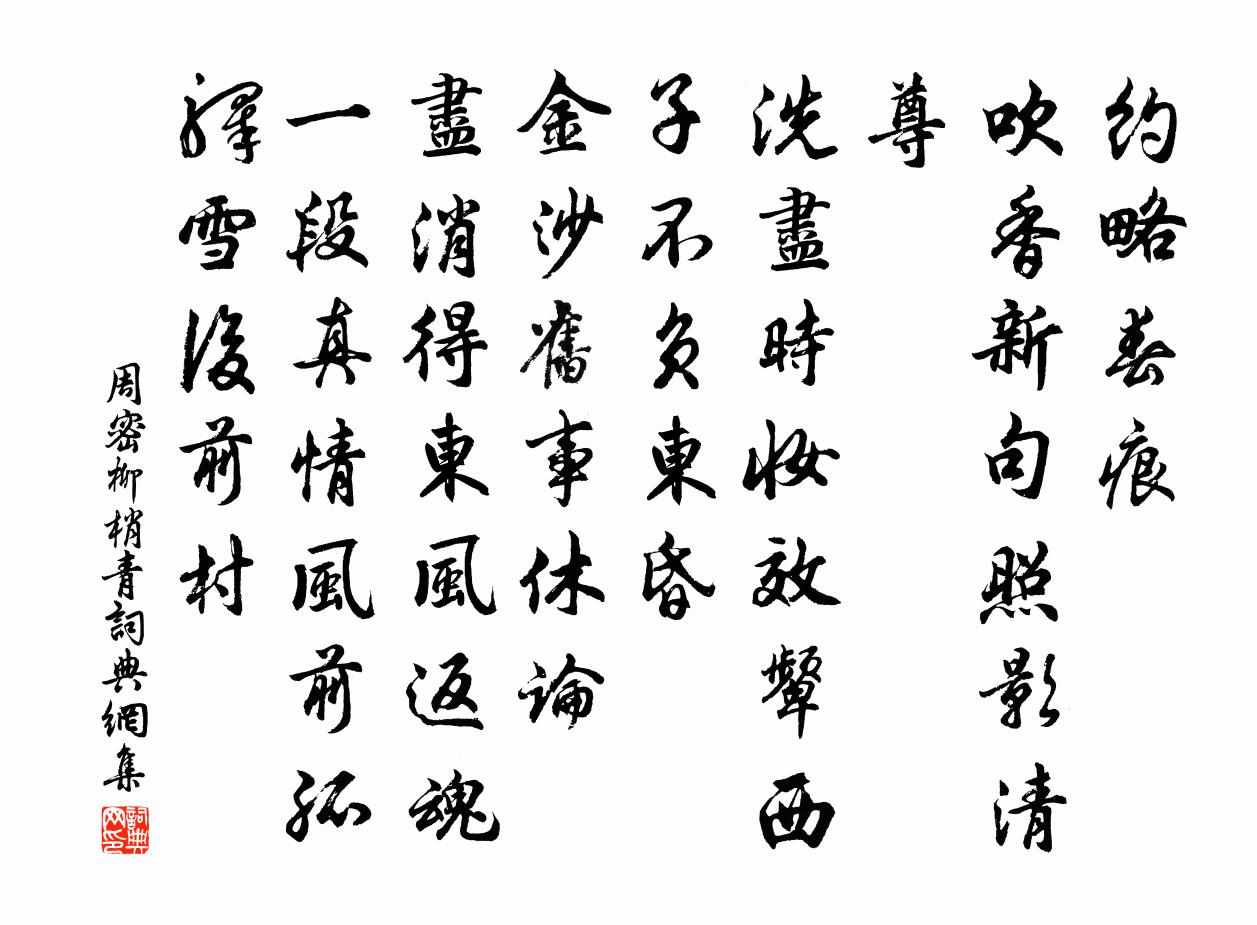 約略春痕
吹香新句照影清
尊
洗盡時妝效顰西
子不負東昏
金沙舊事休論
盡消得東風返魂
一段真情風前孤
驛雪後前村
周密柳梢青詞典網集
詞典網印